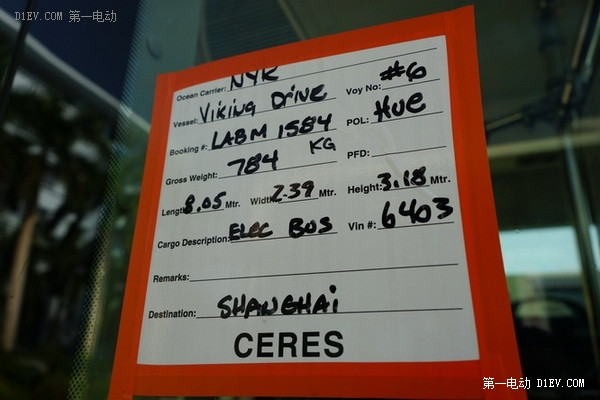 D1EV.COM 第一电动
Ocean Carrier: NYK
Voy No: #6
Vessel: VIKING DRIVE
POL: HUE
Booking #: LABM 1584
PFD:
Gross Weight: 784 KG
Length 8.05 Mtr. Width 2.39 Mtr. Height: 3.18 Mtr.
Cargo Description: ELEC BUS Vin #: 6403
Remarks:
Destination: SHANGHAI
CERES
第一电动 D1EV.COM